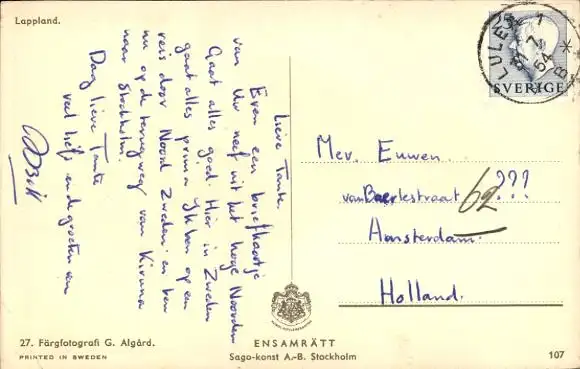 Lappland.
Lieve Tante.
Even een briefkaartje
van Uw neef uit het hoge Noorden
Gaat alles goed. Hier in Zweden
gaat alles prima. Ik ben op een
reis door Noord Zweden en ben
nu op de terugweg van Kiruna
naar Stockholm.
Dag lieve Tante
veel liefs en de groeten van
LULEÅ 1
7
54
B
SVERIGE
Mev. Euwen.
van Baerlestraat 62???
Amsterdam.
Holland.
27. Färgfotografi G. Algård.
PRINTED IN SWEDEN
ENSAMRÄTT
Sago-konst A.-B. Stockholm
107